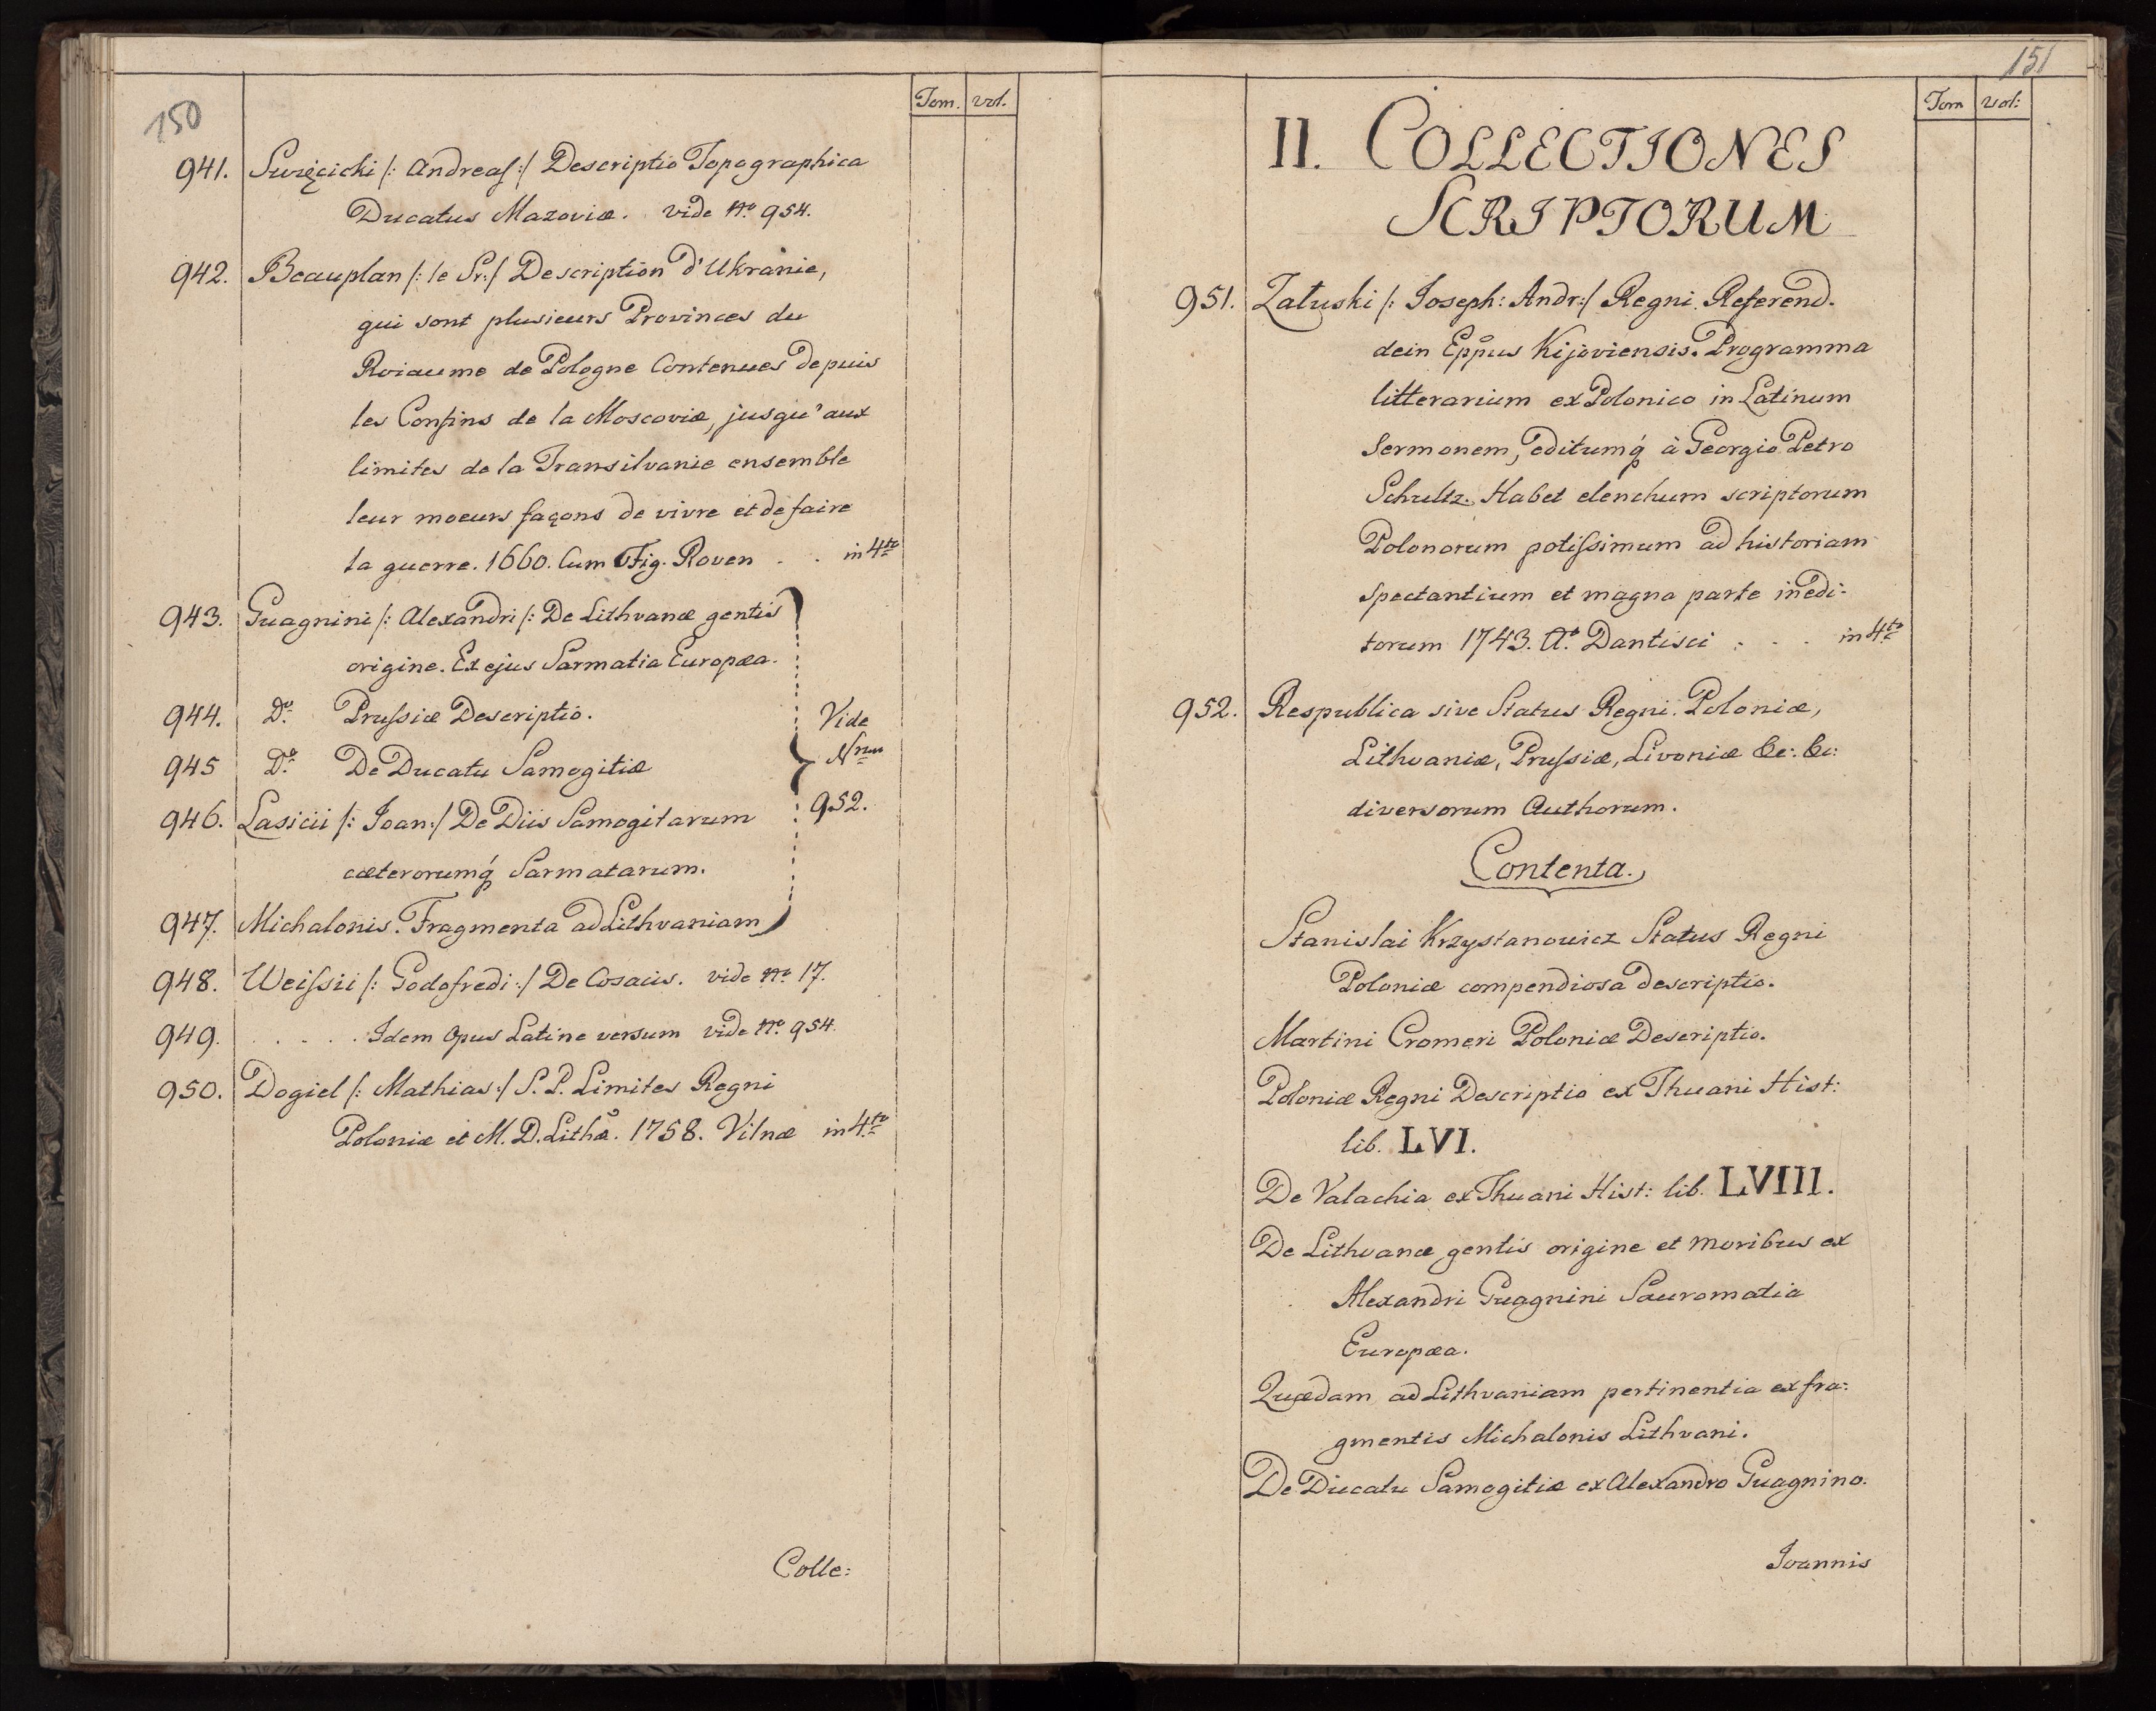 150
Tom. vol.
941. Swięcicki /: Andreas :/ Descriptio Topographica
Ducatus Mazoviæ. vide No. 954.
942. Beauplan /: le Sr: / Description d'Ukranie,
qui sont plusieurs Provinces du
Roiaume de Pologne Contenues depuis
les Confins de la Moscoviæ, jusqu'aux
limites de la Transilvanie ensemble
leur moeurs façons de vivre et de faire
la guerre. 1660. Cum Fig. Roven . . in 4to
943. Guagnini /: Alexandri /: De Lithvanæ gentis
origine. Ex ejus Sarmatia Europæa.
944. Do. Prussiæ Descriptio.
945 Do. De Ducatu Samogitiæ
Vide
Nrum
952.
946. Lasicii /: Joan: / De Diis Samogitarum
cæterorumq́ Sarmatarum.
947. Michalonis. Fragmenta ad Lithvaniam
948. Weissii /: Godofredi :/ De Cosacis. vide No 17.
949. . . . . . Idem Opus Latine versum vide No. 954.
950. Dogiel /: Mathias :/ S. P. Limites Regni
Poloniæ et M. D. Lithæ. 1758. Vilnæ in 4to
Colle:
151
Tom vol:
II. COLLECTIONES
SCRIPTORUM
951. Załuski /: Joseph: Andr: / Regni Referend.
dein Eppus Kijoviensis. Programma
litterarium ex Polonico in Latinum
Sermonem, editumq́ à Georgio Petro
Schultz. Habet elenchum scriptorum
Polonorum potissimum ad historiam
spectantium et magna parte inedi-
torum 1743. Ao. Dantisci . . . in 4to
952. Respublica sive Status Regni Poloniæ,
Lithvaniæ, Prussiæ, Livoniæ &c: &c:
diversorum Authorum.
Contenta.
Stanislai Krzystanowicz Status Regni
Poloniæ compendiosa descriptio.
Martini Cromeri Poloniæ Descriptio.
Poloniæ Regni Descriptio ex Thuani Hist:
lib. LVI.
De Valachia ex Thuani Hist: lib. LVIII.
De Lithvanæ gentis origine et moribus ex
Alexandri Guagnini Sauromatia
Europæa.
Quædam ad Lithvaniam pertinentia ex fra:
gmentis Michalonis Lithvani.
De Ducatu Samogitiæ ex Alexandro Guagnino.
Joannis